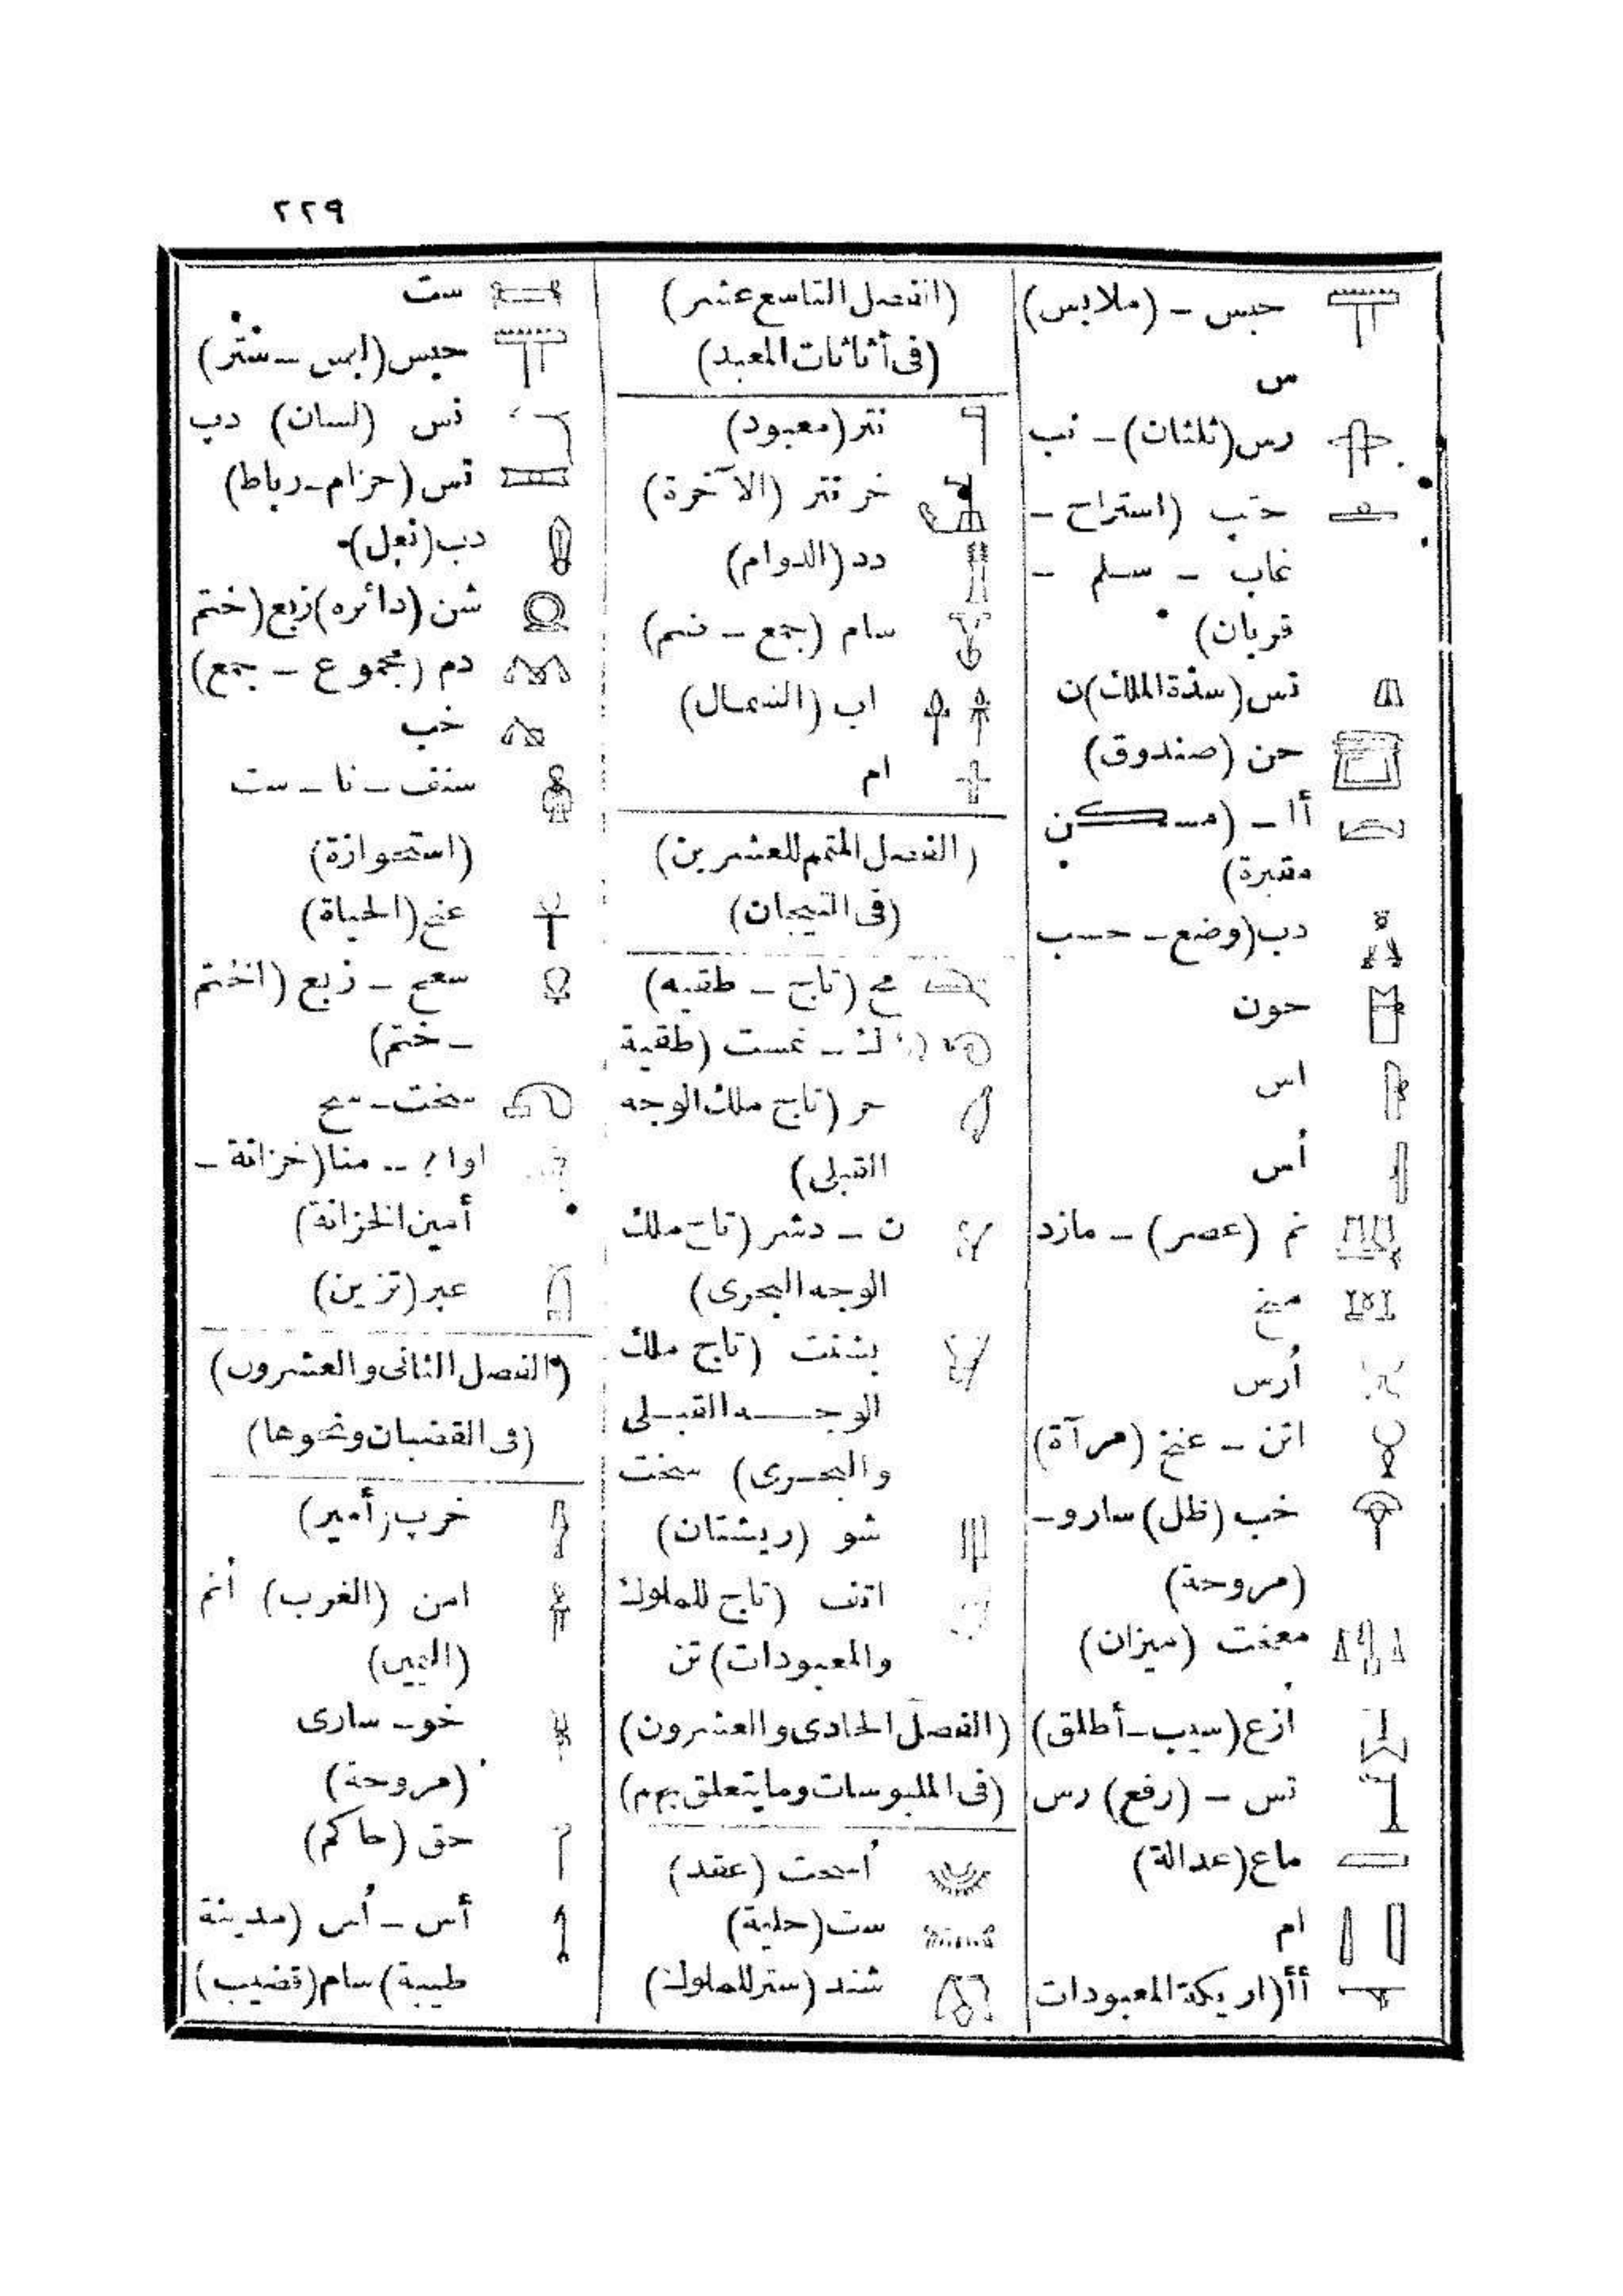 ٢٢٩
حبس - (ملابس)
س
رس (ثلثان) - نب
حتب (استراح -
غاب - سلم -
قربان)
نس (سدة الملك) ن
حن (صندوق)
أا - (مسكن
مقبرة)
دب (وضع - حسب
حون
اس
أس
نم (عصر) - مازد
منخ
أرس
اتن - عنخ (مرآة)
خب (ظل) سارو -
(مروحة)
معخت (ميزان)
ازع (سيب - أطلق)
تس - (رفع) رس
ماع (عدالة)
ام
أأ (اريكة المعبودات
(الفصل التاسع عشر)
(فى أثاثات المعبد)
نتر (معبود)
خر نتر (الآخرة)
دد (الدوام)
سام (جمع - ضم)
اب (الشمال)
ام
(الفصل المتمم للعشرين)
(فى التيجان)
مح (تاج - طقيه)
ك - نمست (طقية
حر (تاج ملك الوجه
القبلى)
ن - دشر (تاج ملك
الوجه البحرى)
بشنت (تاج ملك
الوجه القبلى
والبحرى) سخت
شو (ريشتان)
اتف (تاج للملوك
والمعبودات) تن
(الفصل الحادى والعشرون)
(فى الملبوسات وما يتعلق بهم)
أسخت (عقد)
ست (حلية)
شند (ستر للملوك)
ست
حبس (ابس - شتر)
نس (لسان) دب
تس (حزام - رباط)
دب (نعل)
شن (دائره) زبع (ختم
دم (مجموع - جمع)
خب
سنف - نا - ست
(استحوازة)
عنخ (الحياة)
سعح - زبع (اختم
- ختم)
سخت - سح
اوا ! - منا (خزانة -
أمين الخزانة)
عبر (تزين)
(الفصل الثانى والعشرون)
(فى القضبان ونحوها)
خرب (أمير)
امن (الغرب) أنم
(اليمين)
خو - سارى
(مروحة)
حق (حاكم)
أس - أس (مدينة
طيبة) سام (قضيب)